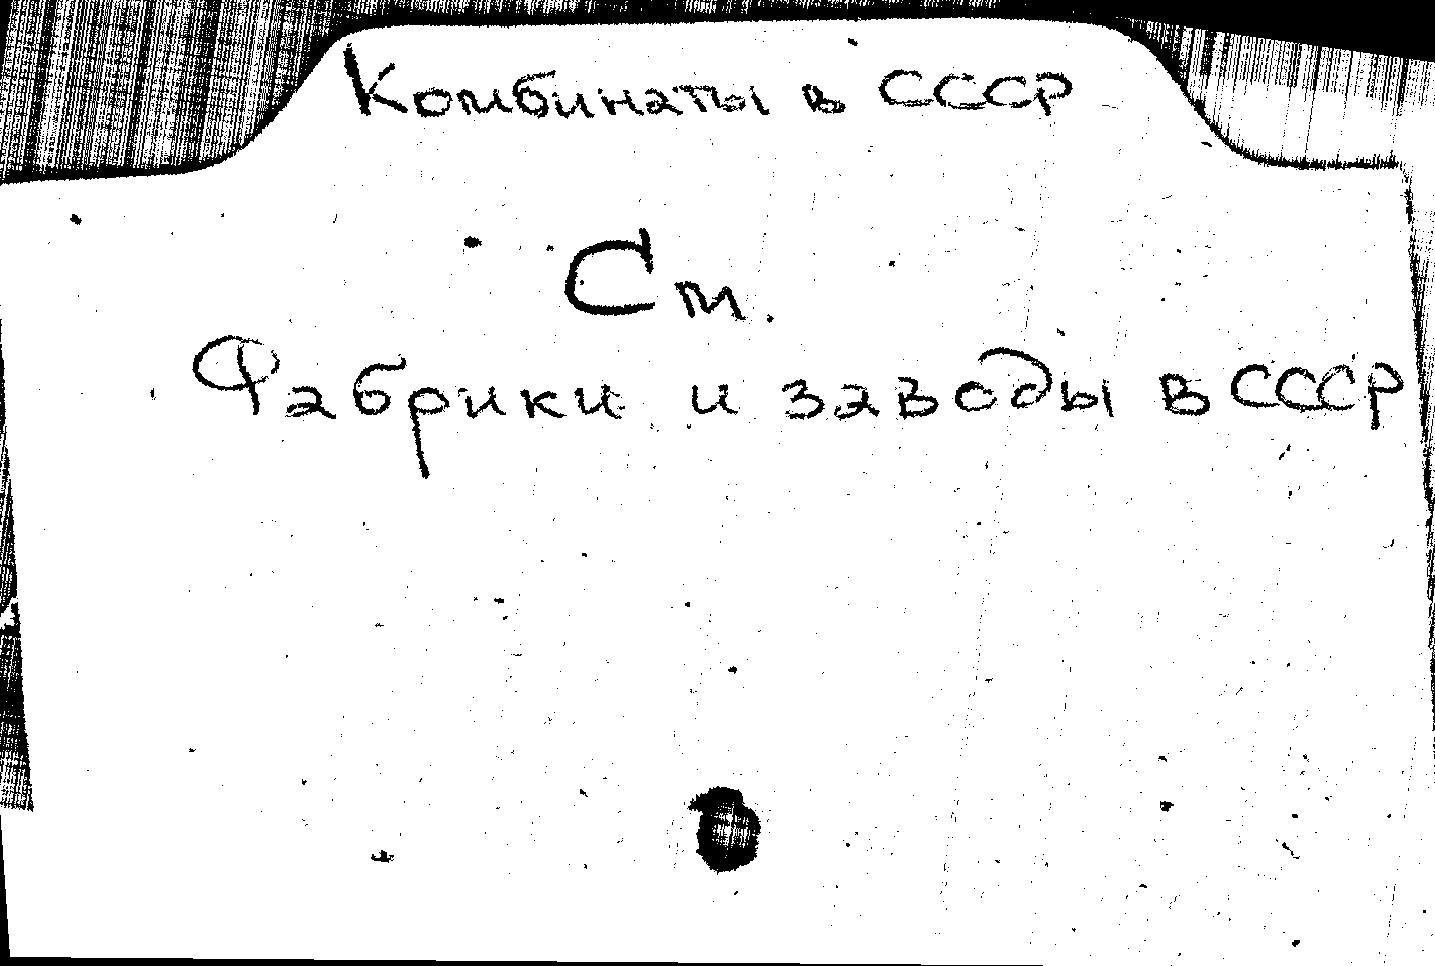 Комбинаты в СССР
См.
Фабрики и заводы в СССР